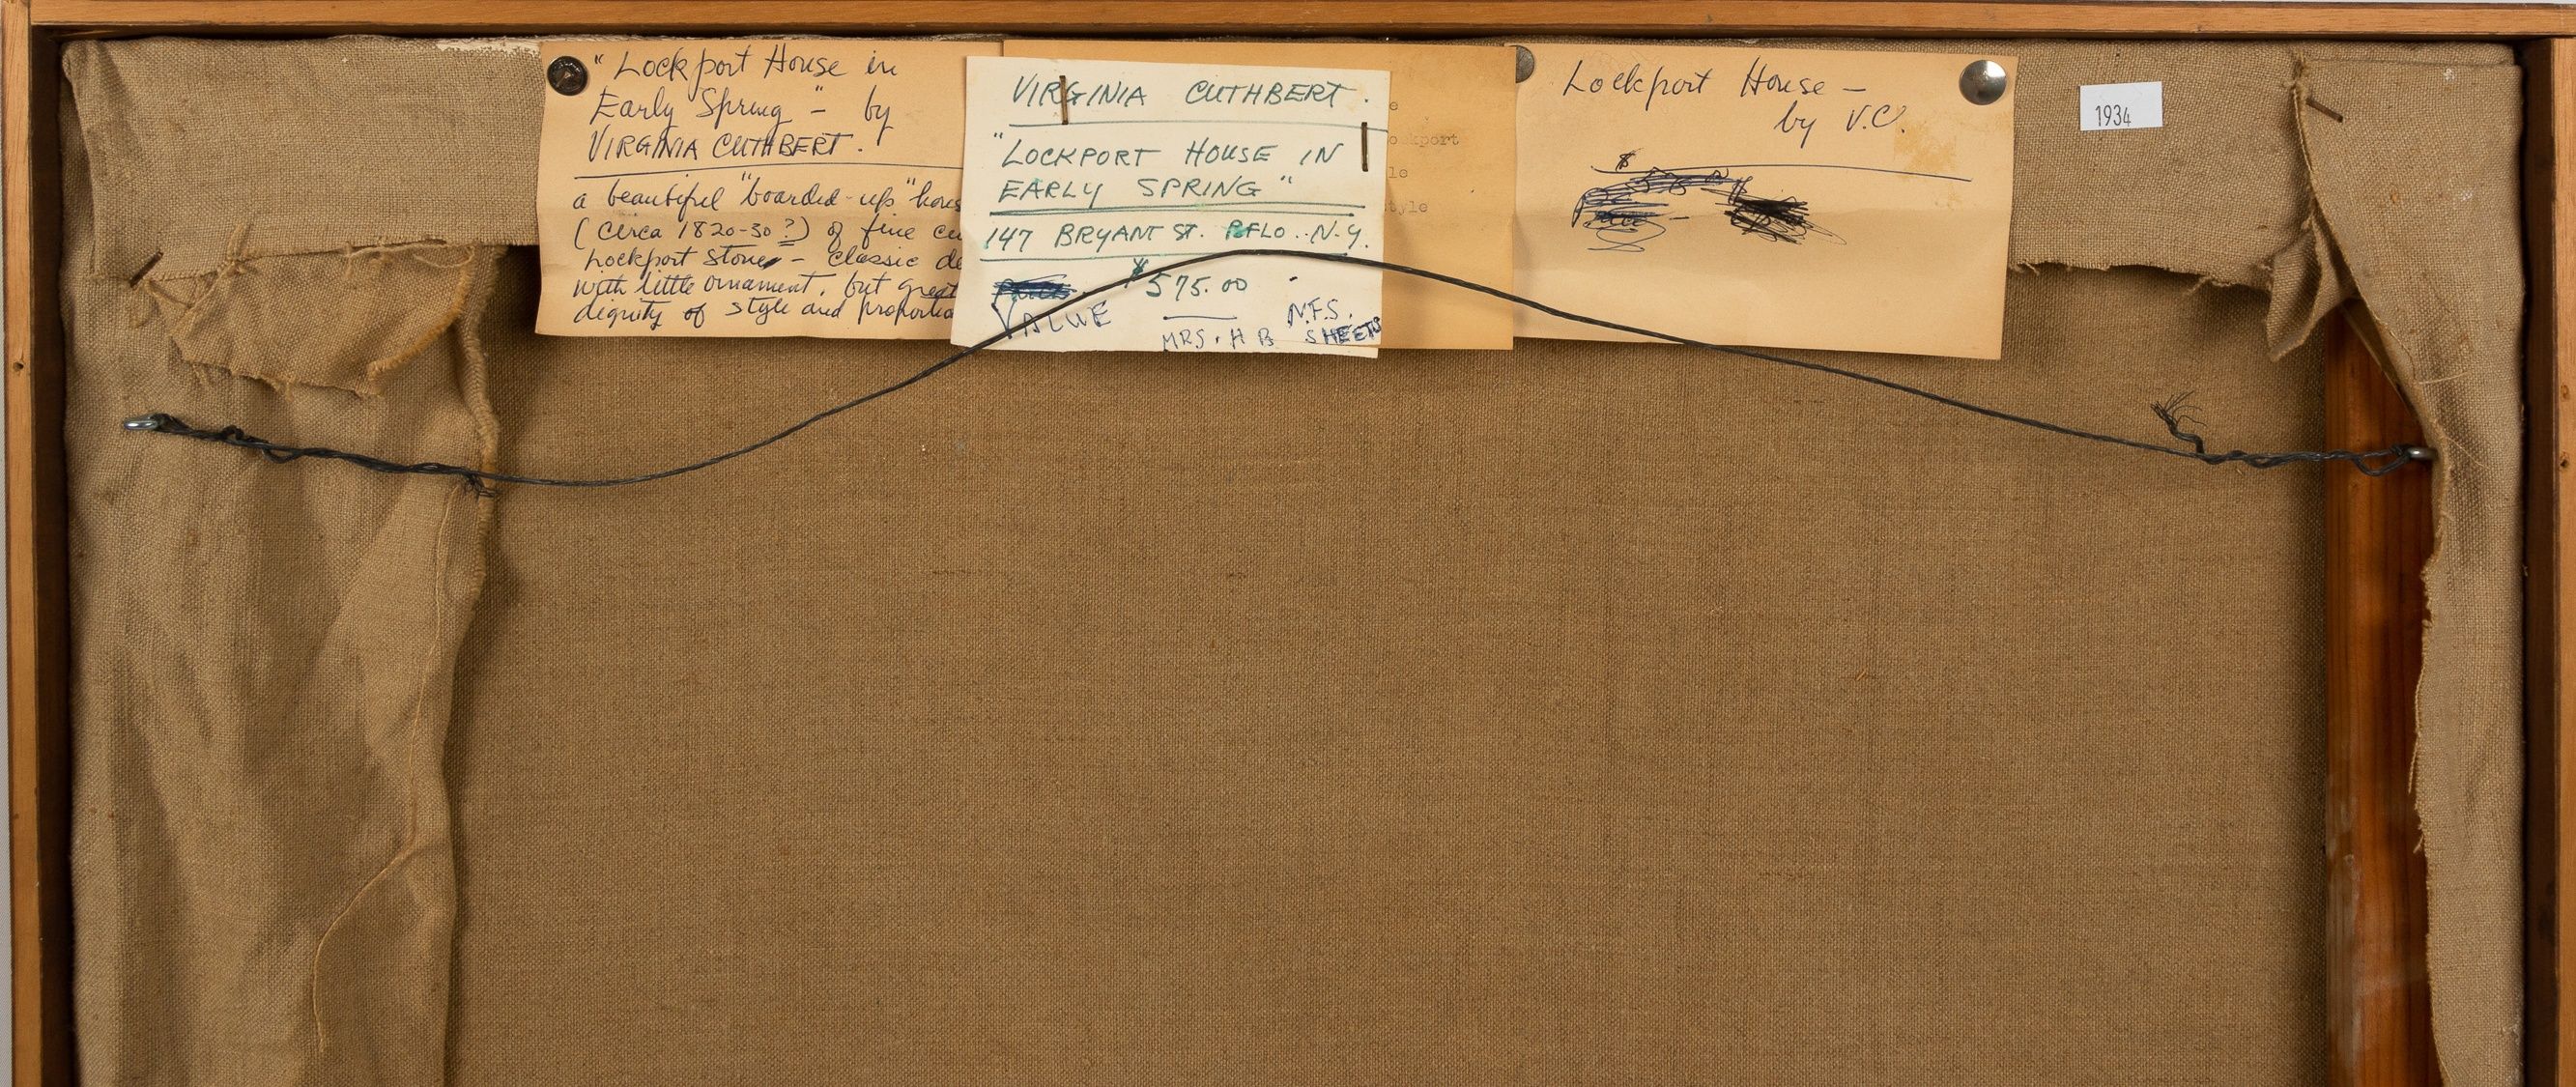 "Lockport House in
Early Spring" - by
VIRGINIA CUTHBERT.
a beautiful "boarded-up" hous
(circa 1820-30?) of fine cu
Lockport stone - classic de
with little ornament, but great
dignity of style and proportio
VIRGINIA CUTHBERT.
"LOCKPORT HOUSE IN
EARLY SPRING"
147 BRYANT ST. BFLO.. N.Y.
$575.00 -
VALUE
N.F.S.
MRS. H B SHEETS
e
ockport
le
tyle
Lockport House -
by V.C.
$
1934